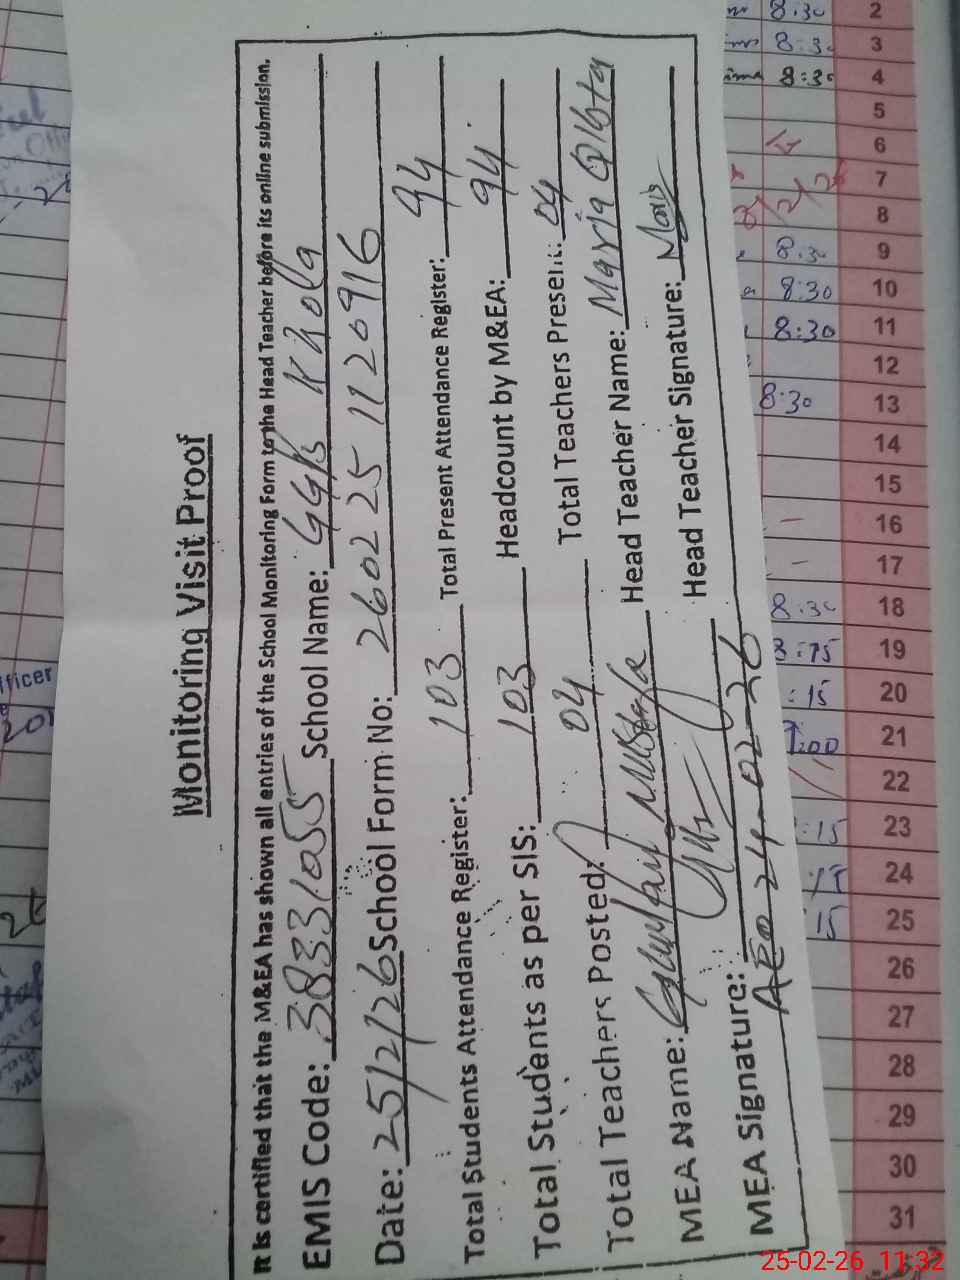 Monitoring Visit Proof
It is certified that the M&EA has shown all entries of the School Monitoring Form to the Head Teacher before its online submission.
EMIS Code: 38331055 School Name: GGPS Khola
Date: 25/2/26 School Form No: 260225 1120916
Total Students Attendance Register: 103 Total Present Attendance Register: 94
Total Students as per SIS: 103 Headcount by M&EA: 94
Total Teachers Posted: 04 Total Teachers Present: 04
MEA Name: Mustafa Head Teacher Name: Maria
MEA Signature: Head Teacher Signature: Maria
AEO 24-02-26
2 8:30
3 8:30
4 8:30
5
6
7
8
9 8:30
10 8:30
11 8:30
12
13 8:30
14
15
16
17
18 8:30
19
20 :15
21
22
23 :15
24
25 15
26
27
28
29
30
31
25-02-26 11:32